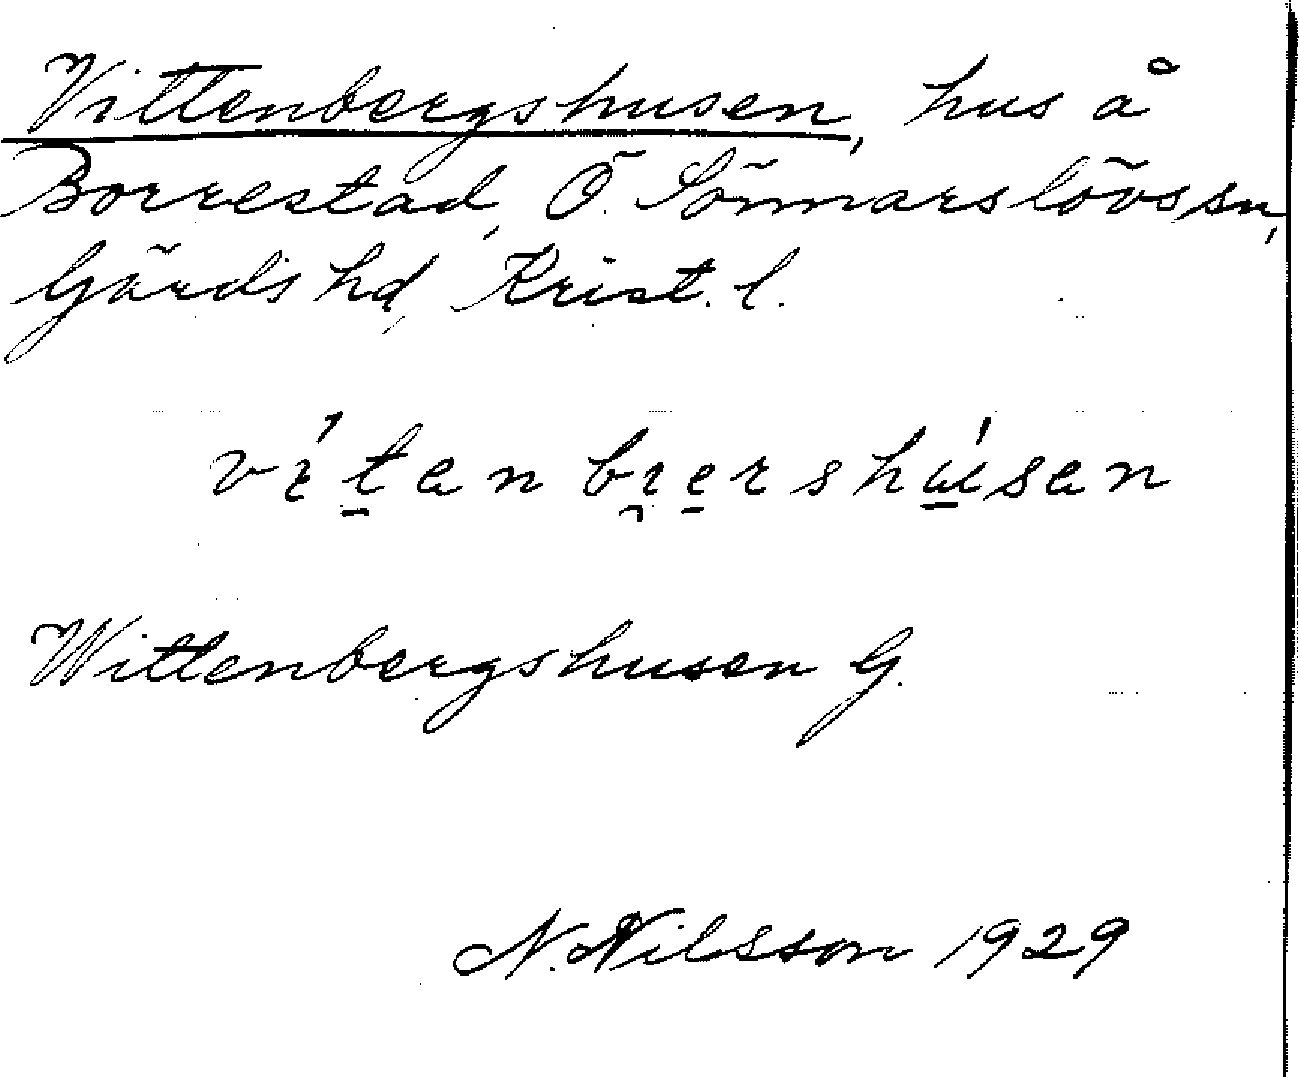 Vittenbergshusen, hus å
Borrestad, Ö. Sönnarslövs sn,
Gärds hd, Krist. l.
Wittenbergshusen G.
N. Nilsson 1929